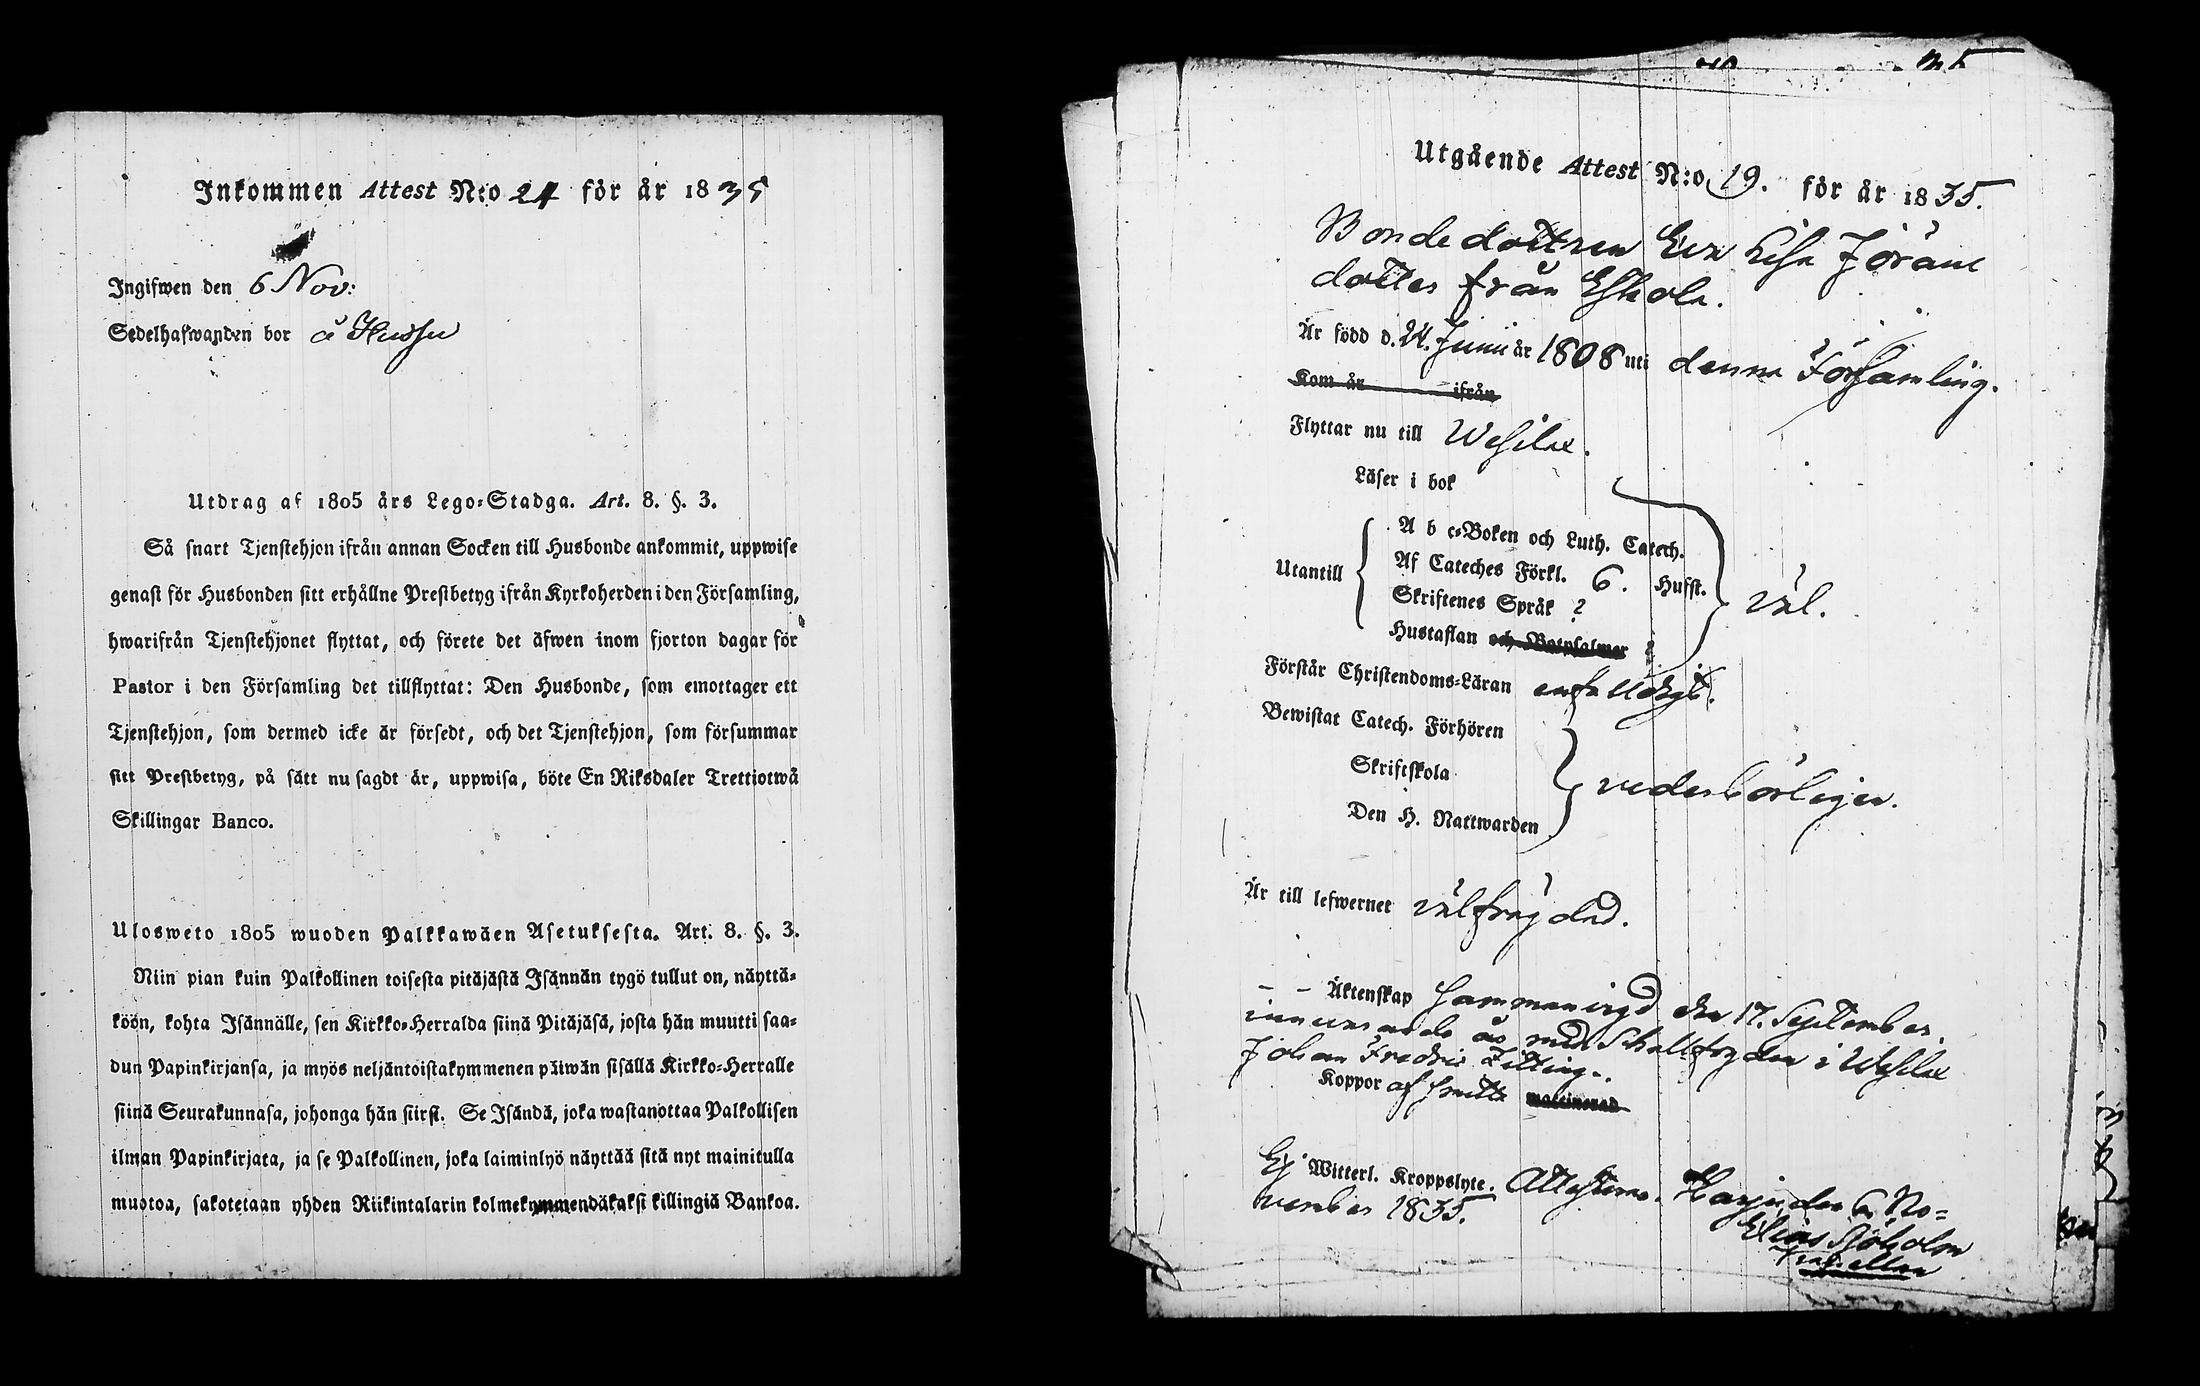 Inkommen Attest N:o 24 för år 1835
Ingifwen den 6 Nov:
Sedelhafwanden bor å
Utdrag af 1805 års Lego-Stadga. Art. 8. §. 3.
Så snart Tjenstehjon ifrån annan Socken till Husbonde ankommit, uppwise
genast för Husbonden sitt erhållne Prestbetyg ifrån Kyrkoherden i den Församling,
hwarifrån Tjenstehjonet flyttat, och förete det äfwen inom fjorton dagar för
Pastor i den Församling det tillflyttat: Den Husbonde, som emottager ett
Tjenstehjon, som dermed icke är försedt, och det Tjenstehjon, som försummar
sitt Prestbetyg, på sätt nu sagdt är, uppwisa, böte En Riksdaler Trettiotwå
Skillingar Banco.
Ulosweto 1805 wuoden Palkkawäen Asetuksesta. Art. 8. §. 3.
Niin pian kuin Palkollinen toisesta pitäjästä Isännän tygö tullut on, näyttä-
köön, kohta Isännälle, sen Kirkko-Herralda siinä Pitäjäsä, josta hän muutti saa-
dun Papinkirjansa, ja myös neljäntoistakymmenen päiwän sisällä Kirkko-Herralle
siinä Seurakunnasa, johonga hän siirst. Se Isändä, joka wastanottaa Palkollisen
ilman Papinkirjata, ja se Palkollinen, joka laiminlyö näyttää sitä nyt mainitulla
muotoa, sakotetaan yhden Riikintalarin kolmekymmendäkaksi killingiä Bankoa.
Utgående Attest N:o 19. för år 1835.
Bondedottren Eva Lisa Jöräns
dotter från Eskola.
Är född d. 24. Junii år 1808 uti denna Församling.
Kom år ifrån
Flyttar nu till Wesilax.
Läser i bok
A b c-Boken och Luth. Catech.
Utantill Af Cateches Förkl. 6. Hufst. väl.
Skriftenes Språk ?
Hustaflan och Botpsalmer ?
Förstår Christendoms-Läran enfaldigt.
Bewistat Catech. Förhören
Skriftskola vederbörligen.
Den H. Nattwarden
Är till lefwernet välfrägdad.
– – Äktenskap sammanvigd den 17. September
innevarande år med i Wesilax
Johan Fredric
Koppor haft vaccinerad
Ej Witterl. Kroppslyte. Attesterar. den 6 No=
vember 1835.
Elias Sjöholm
Capellan